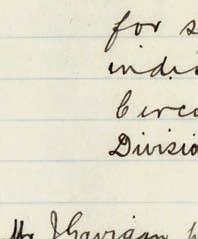 for s
indi
Circ
Divisio
Mr J Gavigan h